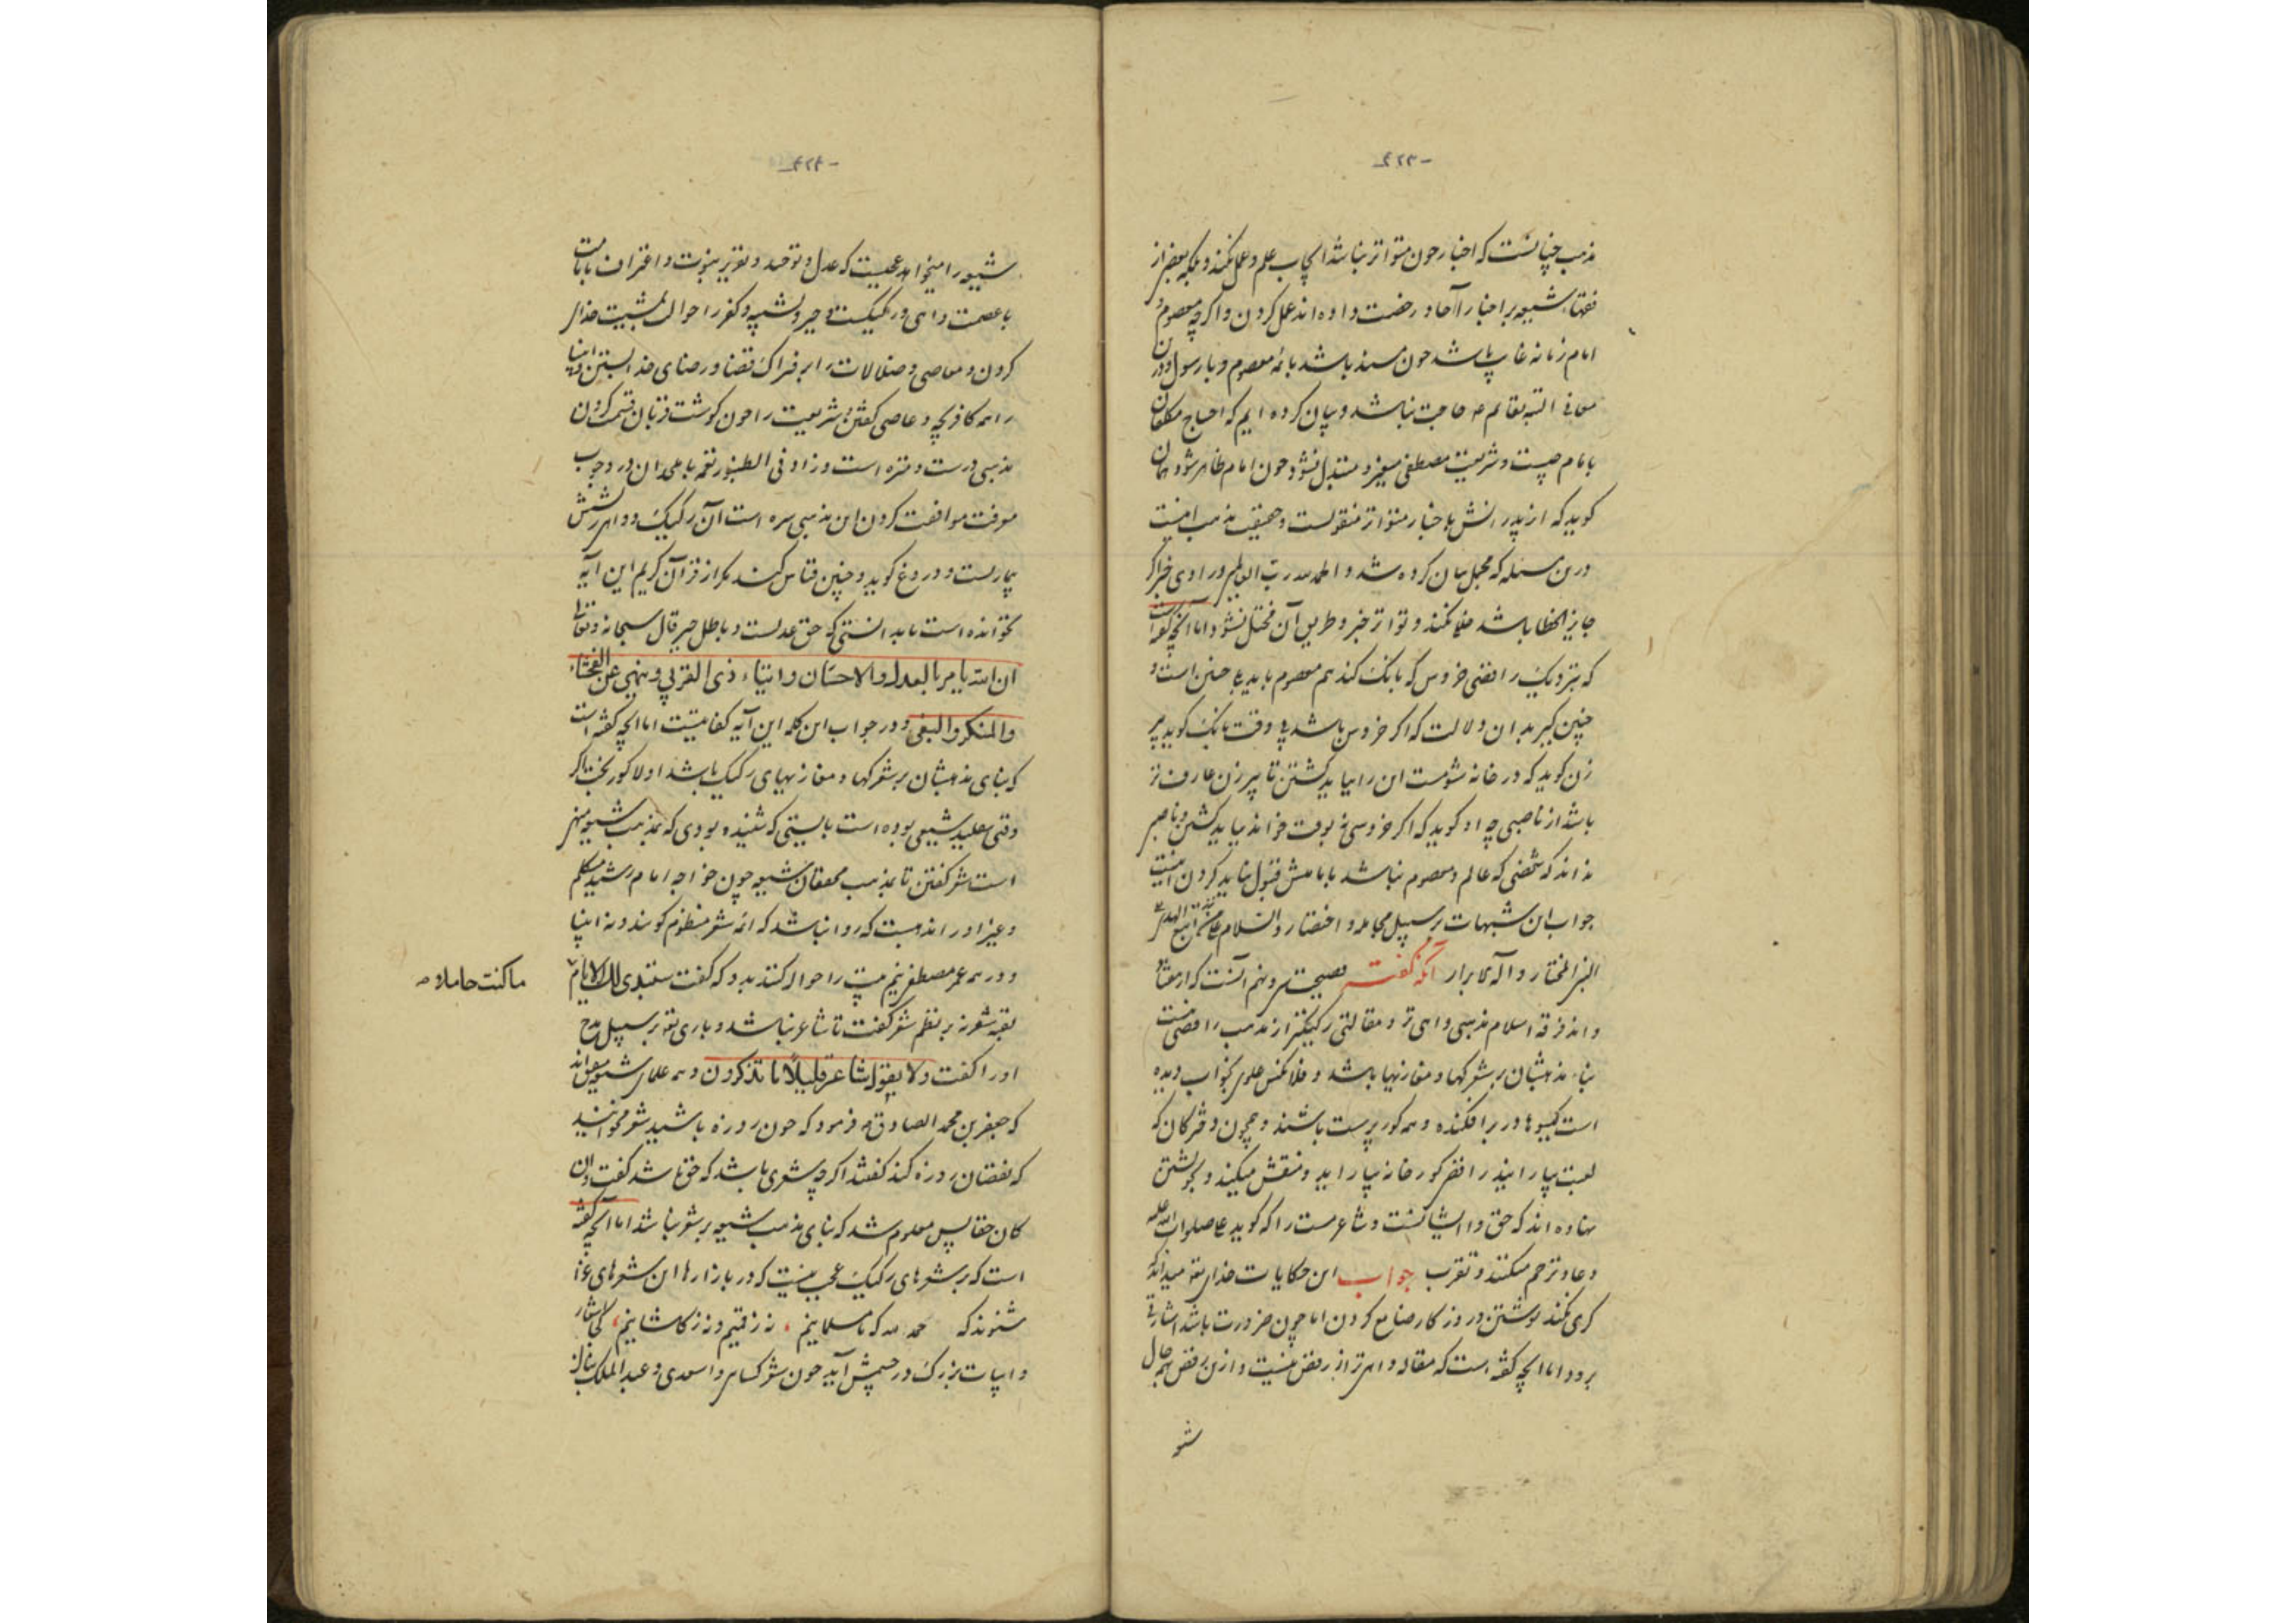 -۴۲۳-
مذهب چنانست که اخبار چون متواتر نباشد ایجاب علم و عمل نکند و بلکه بعضی از
فقهاء شیعه بر اخبار آحاد رخصت داده اند عمل کردن و اگرچه معصوم و
امام زمانه غایب باشد چون مسند باشد بائمه معصوم و یا رسول و درین
معانی البته بقائم ع حاجت نباشد و بیان کرده ایم که احتیاج مکلفان
بامام چیست و شریعت مصطفی متغیر و متبدل نشود و چون امام ظاهر شود همان
گوید که از پدرانش باخبار متواتر منقولست و حقیقت مذهب اینست
درین مسئله که مجمل بیان کرده شد و الحمد لله رب العالمین و راوی خبر اگر
جایز الخطا باشد خللی نکند و تواتر خبر و طریق آن مختل نشود اما آنچه گفته است
که بنزدیک رافضی خروس که بانگ کند هم معصوم باید چنین است و
چنین گیر بدان دلالت که اگر خروس باشد بی وقت بانگ گوید پیر
زن گوید که در خانه شومست این را بباید کشتن تا پیر زن عارف تر
باشد از ناصبی چه او گوید که اگر خروسی نه بوقت خواند بباید کشتن و ناصبی
نداند که شخصی که عالم و معصوم نباشد بامامتش قبول نباید کردن اینست
جواب این شبهات بر سبیل مجامله و اختصار و السلام علی من اتبع الهدی
النبی المختار و آله الابرار آنگه گفت فضیحت سی و نهم آنست که از هفتاد
و اند فرقه اسلام مذهبی واهی تر و مقالتی رکیکتر از مذهب رافضی نیست
بناء مذهبشان بر شعرکها و مغازیها باشد و فلان کس علوی بخواب دیده
است گیسوها در برافکنده و همه گور پرست باشند و همچون دخترکان که
لعبت بیارایند رافضی گورخانه بیاراید و منقش میکند و بخویشتن
نهاده اند که حق با ایشانست و شاعر مست را که گوید علی صلوات الله علیه
دعا و ترحم میکنند و تقرب جواب این حکایات خدای تعالی میداند که
کری نکند نوشتن و روزگار ضایع کردن اما چون ضرورت باشد اشارتی
برود اما آنچه گفته است که مقاله واهی تر از رفض نیست و ازین رفض بهر حال
شیعه
-۴۲۴-
شیعه را میخواهد عجبست که عدل و توحید و تقریر نبوت و اعتراف بامامت
با عصمت واهی و رکیکست و جبر و تشبیه و کفر را حوالت بمشیت خدای
کردن و معاصی و ضلالات را بر فتراک قضا و رضای خدا بستن و انبیا
را همه کافر بچه و عاصی گفتن و شریعت را چون گوشت قربان قسمت کردن
مذهبی درست و منزه است و زاد فی الطنبور نغمه با ملحدان در وجوب
معرفت موافقت کردن این مذهبی سره است آن رکیک و واهی ریشش
بیاریست و دروغ گوید و چنین قیاس کند مگر از قرآن کریم این آیه
نخوانده است باید دانستی که حق عدلست و باطل جبر قال سبحانه و تعالی
ان الله یامر بالعدل و الاحسان و ایتاء ذی القربی و ینهی عن الفحشاء
والمنکر والبغی و در جواب این کلمه این آیه کفایتست اما آنچه گفته است
که بنای مذهبشان بر شعرکها و مغازیهای رکیک باشد اولا کور بخت اگر
وقتی بتقلید شیعی بوده است بایستی که شنیده بودی که بمذهب شیعه منهی
است شعر گفتن تا بمذهب محققان شیعه چون خواجه امام رشید متکلم
و غیر او را مذهبست که روا نباشد که ائمه شعر منظوم گویند و نه انبیا
و در همه عمر مصطفی نیم بیت را حواله کنند بدو که گفت ستبدی لک الایام
ما کنت جاهلا صح
بقیه شعر نه بر نظم شعر گفت تا شاعر نباشد و باری تعالی بر سبیل مدح
او را گفت ولا بقول شاعر قلیلاً ما تذکرون و همه علمای شیعه متفق اند
که جعفر بن محمد الصادق ع فرمود که چون روزه باشید شعر مخوانید
که نقصان روزه کند گفتند اگرچه شعری باشد که حق باشد گفت و ان
کان حقا پس معلوم شد که بنای مذهب شیعه بر شعر نباشد اما آنچه گفته
است که بر شعرهای رکیک عجب نیست که در بازارها این شعرهای غزا
شنوند که حمد لله که ما مسلمانیم، نه ز قمیم و نه ز کاشانیم،
و ابیات بزرگ در چشمش آید چون شعر کسائی و اسعدی و عبد الملک بنان